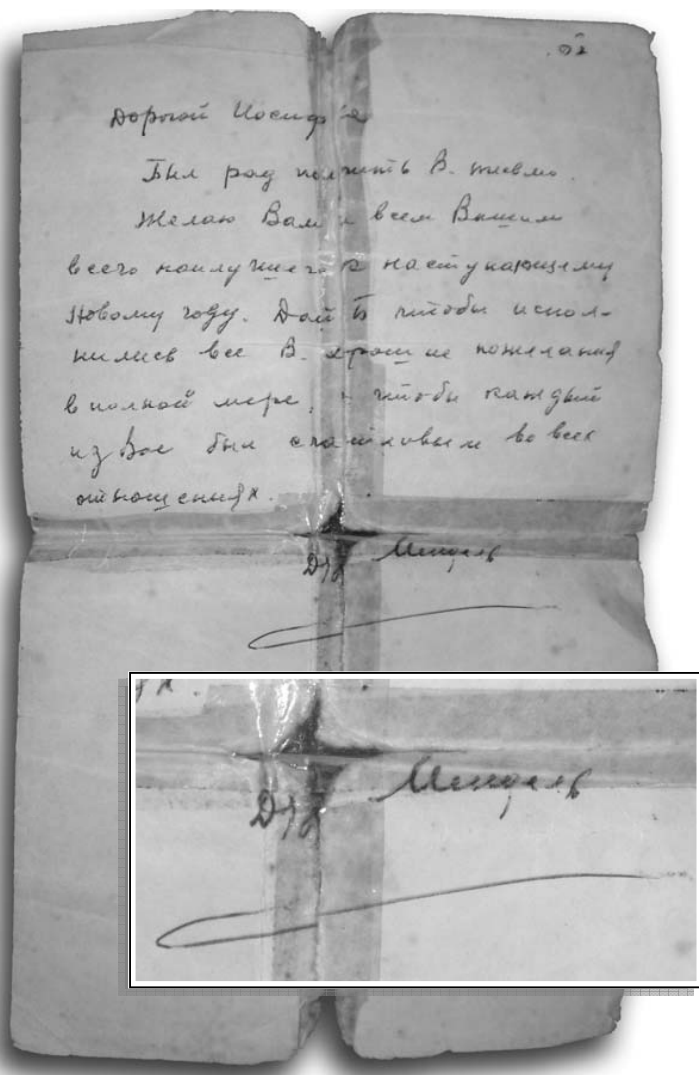 Дорогой
Был рад получить В. письмо.
Желаю Вам и всем Вашим
всего наилучшего к наступающему
Новому году. Дай Б чтобы испол-
нились все В. хорошие пожелания
в полной мере, и чтобы каждый
из Вас был счастливым во всех
отношениях.
Мендель
Мендель